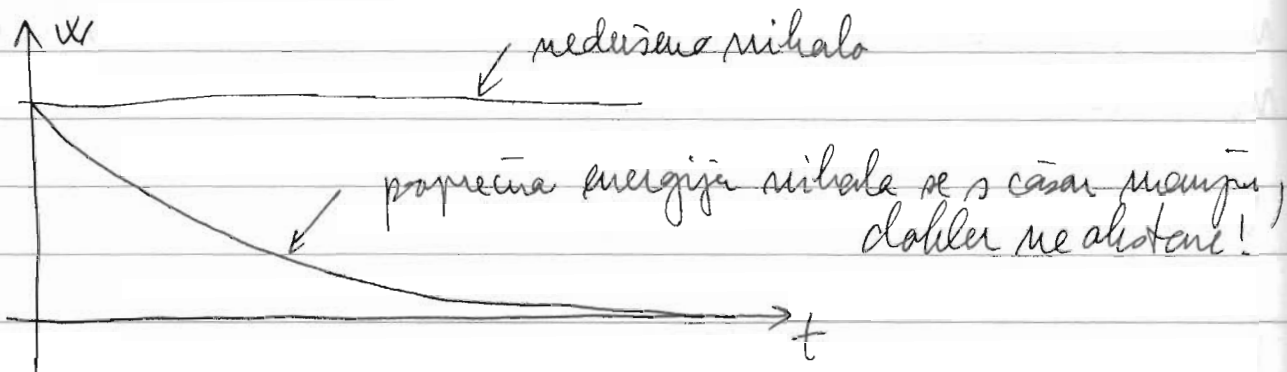 W
nedušeno nihalo
poprečna energija nihala se s časom manjša,
dokler ne obstane!
t